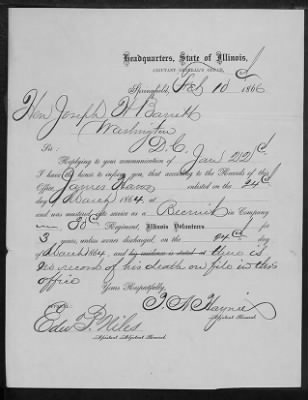 Headquarters, State of Illinois,
ADJUTANT GENERAL'S OFFICE,
Springfield, Feb 10 1866
Hon Joseph H Barrett
Washington
D. C.
Sir:
Replying to your communication of Jan 22d
I have the honor to inform you, that according to the Records of this
Office, James enlisted on the 24th
day of March 1864, at
and was mustered into service as a Recruit in Company
Regiment, Illinois Volunteers
3 years, unless sooner discharged, on the 24th day
of March 1864, and his residence is stated at There is
no record of his death on file in this
office
Yours Respectfully,
I. N. Haynie
Adjutant General.
Edw. P. Niles
Assistant Adjutant General.